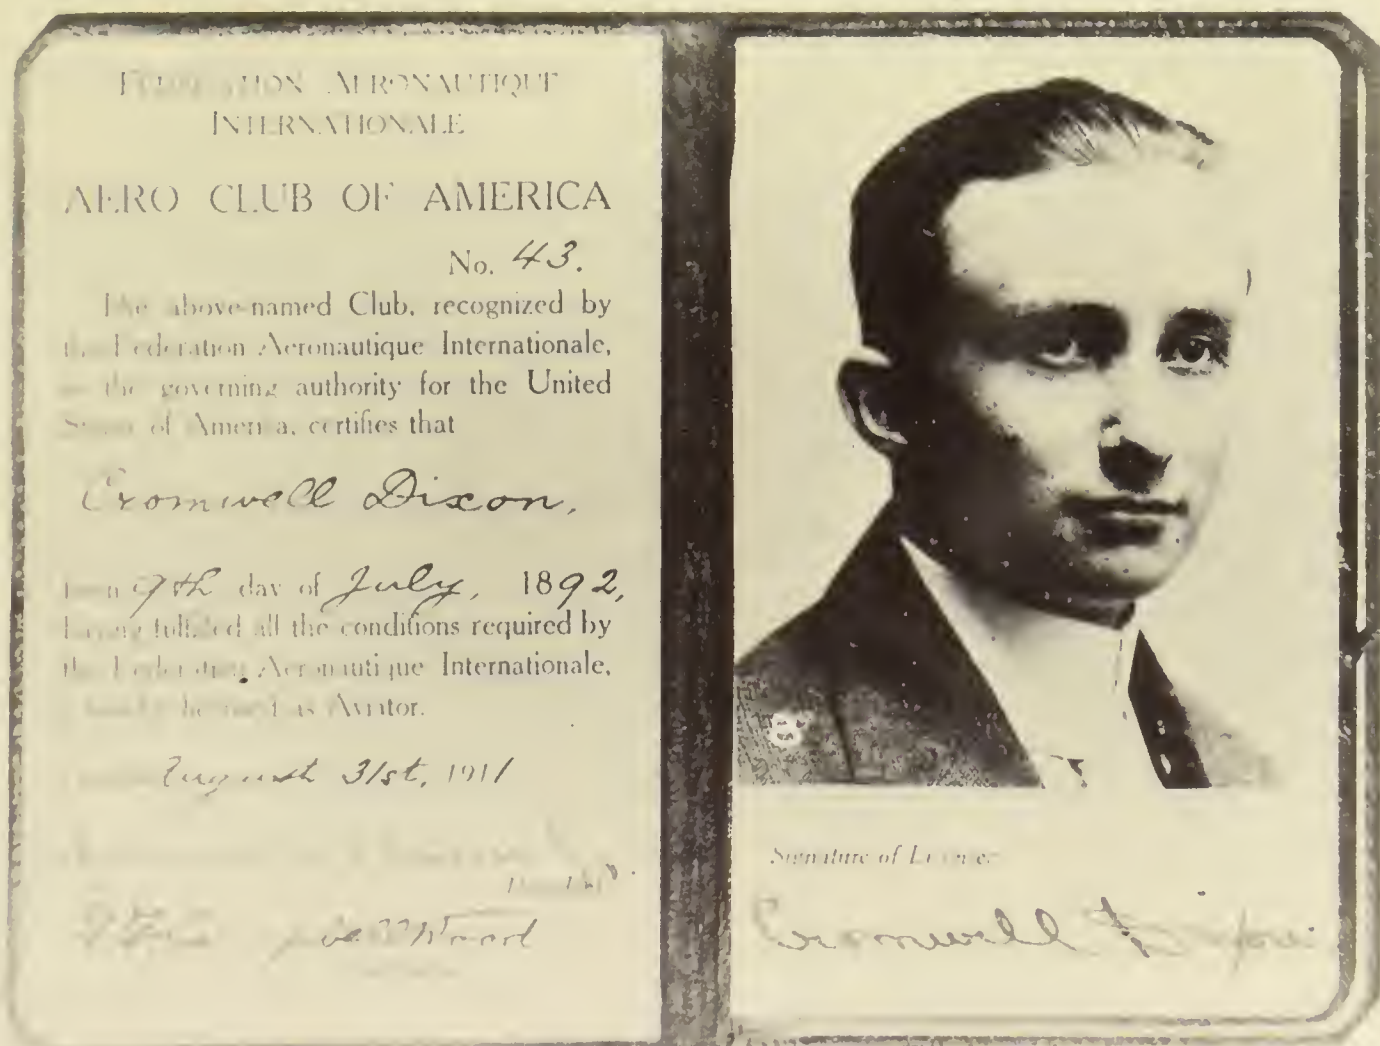 FEDERATION AERONAUTIQUE
INTERNATIONALE
AERO CLUB OF AMERICA
No. 43.
The above-named Club, recognized by
the Federation Aeronautique Internationale,
as the governing authority for the United
States of America, certifies that
Cromwell Dixon,
born 9th day of July, 1892,
having fulfilled all the conditions required by
the Federation Aeronautique Internationale,
is hereby licensed as Aviator.
August 31st, 1911
President
Signature of Licensee
Cromwell Dixon